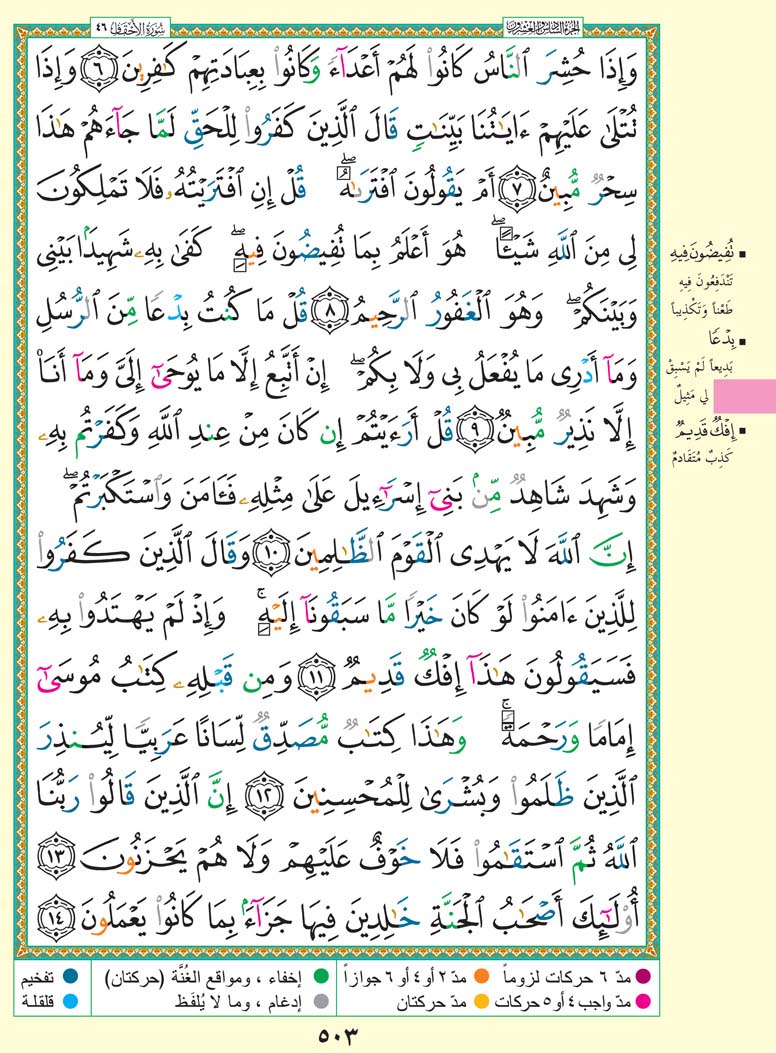 سُورَةُ الأَحْقَافِ ٤٦
الجزء السادس والعشرون
وَإِذَا حُشِرَ ٱلنَّاسُ كَانُوا۟ لَهُمْ أَعْدَآءً وَكَانُوا۟ بِعِبَادَتِهِمْ كَٰفِرِينَ ٦ وَإِذَا
تُتْلَىٰ عَلَيْهِمْ ءَايَٰتُنَا بَيِّنَٰتٍ قَالَ ٱلَّذِينَ كَفَرُوا۟ لِلْحَقِّ لَمَّا جَآءَهُمْ هَٰذَا
سِحْرٌ مُّبِينٌ ٧ أَمْ يَقُولُونَ ٱفْتَرَىٰهُ ۖ قُلْ إِنِ ٱفْتَرَيْتُهُۥ فَلَا تَمْلِكُونَ
لِى مِنَ ٱللَّهِ شَيْـًٔا ۖ هُوَ أَعْلَمُ بِمَا تُفِيضُونَ فِيهِ ۖ كَفَىٰ بِهِۦ شَهِيدًۢا بَيْنِى
وَبَيْنَكُمْ ۖ وَهُوَ ٱلْغَفُورُ ٱلرَّحِيمُ ٨ قُلْ مَا كُنتُ بِدْعًا مِّنَ ٱلرُّسُلِ
وَمَآ أَدْرِى مَا يُفْعَلُ بِى وَلَا بِكُمْ ۖ إِنْ أَتَّبِعُ إِلَّا مَا يُوحَىٰٓ إِلَىَّ وَمَآ أَنَا۠
إِلَّا نَذِيرٌ مُّبِينٌ ٩ قُلْ أَرَءَيْتُمْ إِن كَانَ مِنْ عِندِ ٱللَّهِ وَكَفَرْتُم بِهِۦ
وَشَهِدَ شَاهِدٌ مِّنۢ بَنِىٓ إِسْرَٰٓءِيلَ عَلَىٰ مِثْلِهِۦ فَـَٔامَنَ وَٱسْتَكْبَرْتُمْ ۖ
إِنَّ ٱللَّهَ لَا يَهْدِى ٱلْقَوْمَ ٱلظَّٰلِمِينَ ١٠ وَقَالَ ٱلَّذِينَ كَفَرُوا۟
لِلَّذِينَ ءَامَنُوا۟ لَوْ كَانَ خَيْرًا مَّا سَبَقُونَآ إِلَيْهِ ۚ وَإِذْ لَمْ يَهْتَدُوا۟ بِهِۦ
فَسَيَقُولُونَ هَٰذَآ إِفْكٌ قَدِيمٌ ١١ وَمِن قَبْلِهِۦ كِتَٰبُ مُوسَىٰٓ
إِمَامًا وَرَحْمَةً ۚ وَهَٰذَا كِتَٰبٌ مُّصَدِّقٌ لِّسَانًا عَرَبِيًّا لِّيُنذِرَ
ٱلَّذِينَ ظَلَمُوا۟ وَبُشْرَىٰ لِلْمُحْسِنِينَ ١٢ إِنَّ ٱلَّذِينَ قَالُوا۟ رَبُّنَا
ٱللَّهُ ثُمَّ ٱسْتَقَٰمُوا۟ فَلَا خَوْفٌ عَلَيْهِمْ وَلَا هُمْ يَحْزَنُونَ ١٣
أُو۟لَٰٓئِكَ أَصْحَٰبُ ٱلْجَنَّةِ خَٰلِدِينَ فِيهَا جَزَآءًۢ بِمَا كَانُوا۟ يَعْمَلُونَ ١٤
▪ تُفِيضُونَ فِيهِ
تَنْدَفِعُونَ فيهِ
طَعْناً وَتَكْذِيباً
▪ بِدْعًا
بَدِيعاً لَمْ يَسْبِقْ
لي مَثِيلٌ
▪ إِفْكٌ قَدِيمٌ
كَذِبٌ مُتَقَادمٌ
مدّ ٦ حركات لزوماً مدّ ٢ أو ٤ أو ٦ جوازاً إخفاء ، ومواقع الغُنَّة (حركتان) تفخيم
مدّ واجب ٤ أو ٥ حركات مدّ حركتان إدغام ، وما لا يُلفَظ قلقلة
٥٠٣